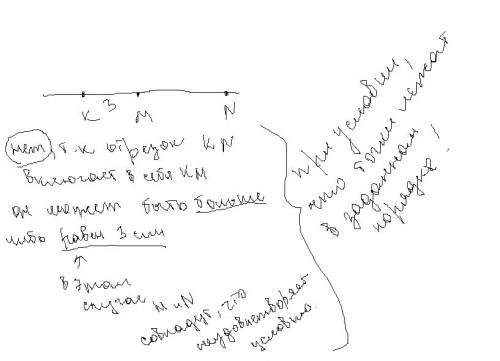 3
K M N
нет, т.к отрезок KN
включает в себя KM
он может быть больше
либо равен 3 см
в этом
случае M и N
совпадут, что
неудовлетворяет
условию.
при условии,
что точки лежат
в заданном
порядке!